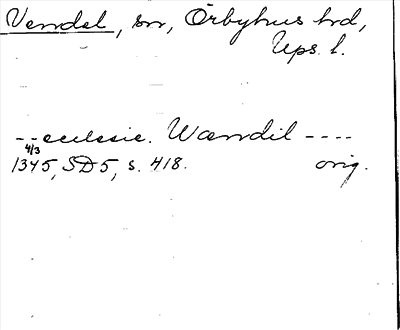 Vendel, sn, Örbyhus hd,
Ups. l.
-- ecclesie. Wændil ----
4/3
1345, SD 5, s. 418. orig.